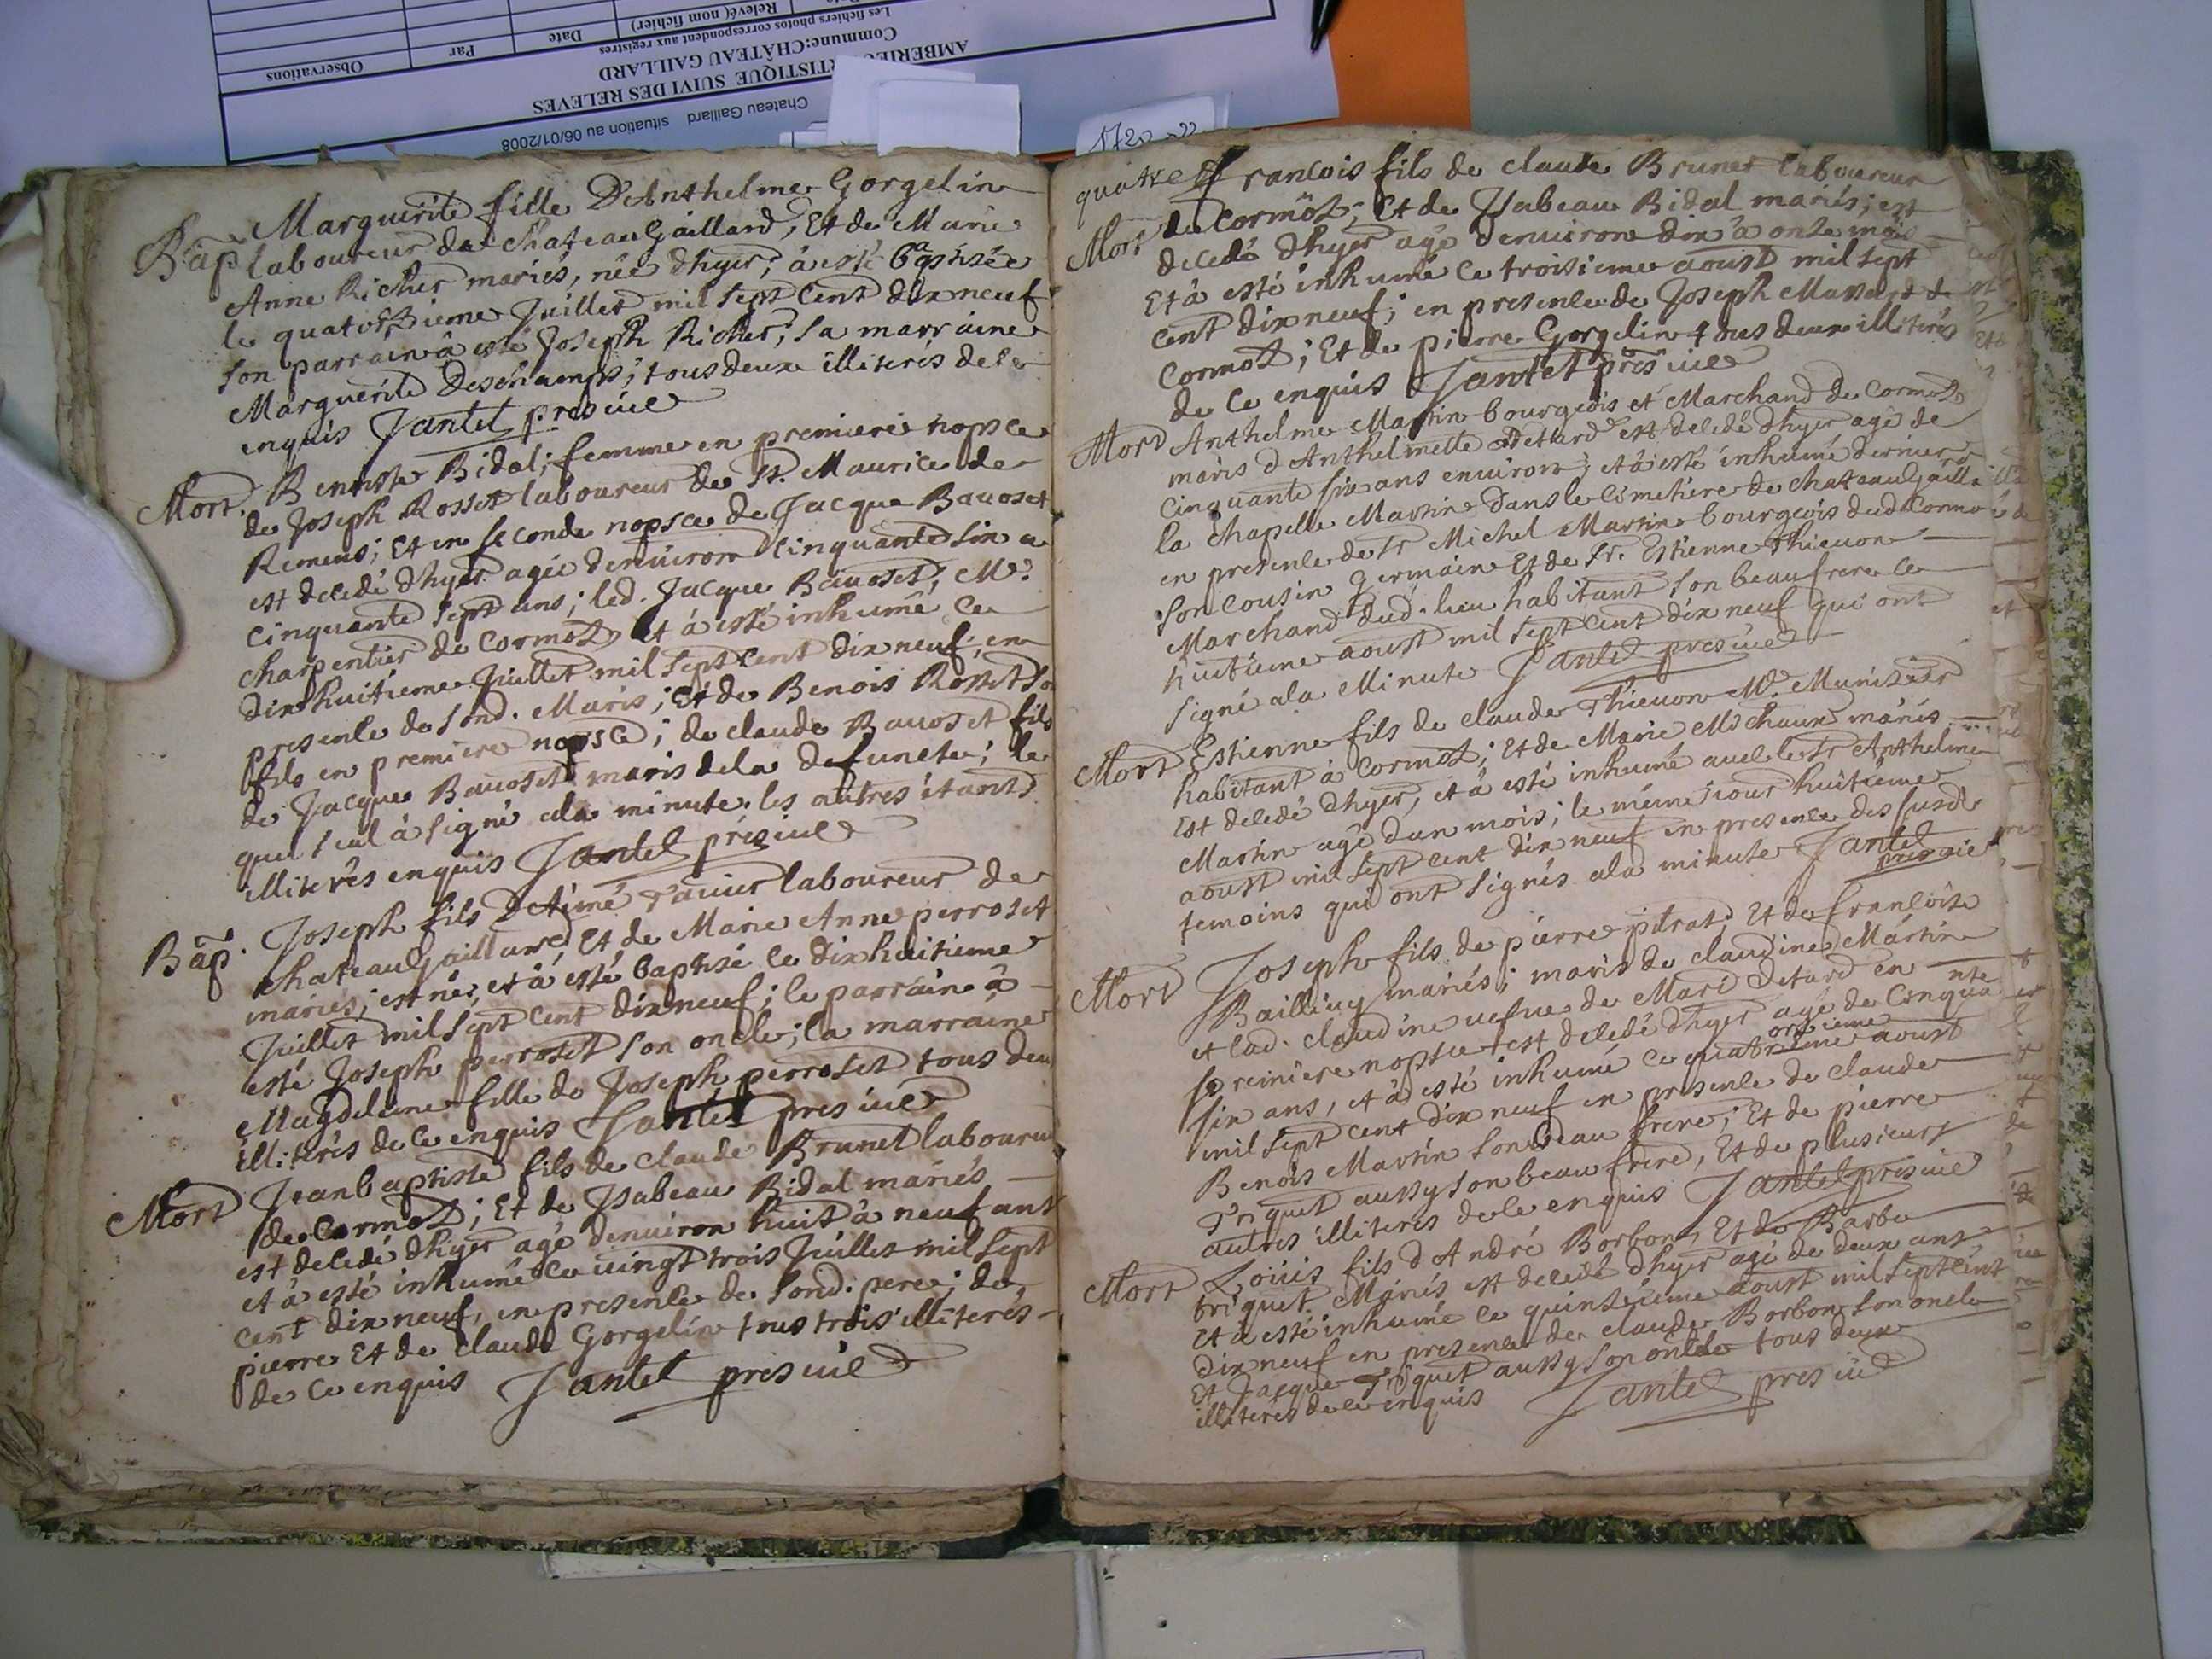 Chateau Gaillard situation au 06/01/2008
SUIVI DES RELEVES
Commune:CHÂTEAU GAILLARD
Les fichiers photos correspondent aux registres
Relevé( nom fichier)
Date
Par
Observations
1720
Bap. Marguerite fille D'Anthelme Gorgelin
laboureur de Chateau Gaillard, Et de Marie
Anne Richer mariés, née d'hyer, à esté baptisée
le quatorzieme Juillet mil sept cent dix neuf
son parrain à esté Joseph Richer; sa marraine
Marguerite Deschamps; tous deux illiterés de ce
enquis Jantet pres vic
Mort. Benoiste Bidal; femme en premiere nopsce
de Joseph Rosset laboureur de St. Maurice de
Remens; Et en seconde nopsce de Jacque Bauoset
est decedé d'hyer agée denuiron cinquante six a
cinquante sept ans; led. Jacque Bauoset; Me.
charpentier de Cormoz et à esté inhumé ce
dix huitieme Juillet mil sept cent dix neuf; en
presence de sond. Maris; Et de Benois Rosset so
fils en premiere nopsce; de claude Bauoset fils
de Jacque Bauoset maris de la defuncte; le
quel seul à signé ala minute. les autres étants
illiterés enquis Jantet pres vic
Bap. Joseph fils D'Aimé Tauier laboureur de
chateauGaillard, Et de Marie Anne perroset
mariés; est né, et à esté baptisé le dix huitieme
Juillet mil sept cent dix neuf; le parrain à
esté Joseph perroset son oncle; la marraine
Magdeleine fille de Joseph perroset tous deu
illiterés de ce enquis Jantet pres vic
Mort Jean baptiste fils de claude Brunet laboureu
de Cormoz; Et de Jsabeau Bidal mariés
est decedé d'hyer agé denuiron huit à neuf ans
et à esté inhumé ce uingt trois Juillet mil sept
cent dix neuf, en presence de sond. pere; de
pierre Et de claude Gorgelin tous trois illiterés
de ce enquis Jantet pres vic
quatre
francois fils de claude Brunet laboureur
Mort de Cormoz; Et de Jsabeau Bidal mariés; est
decedé d'hyer agé denuiron dix à onze mois
Et à esté inhumé ce troisieme aoust mil sept
cent dix neuf; en presence de Joseph de
Cormoz; Et de pierre Gorgelin tous deux illiterés
de ce enquis Jantet pres vic
Mort Anthelme Martin bourgeois et Marchand de Cormoz
maris d'Anthelmette Detard est decedé d'hyer agé de
cinquante six ans enuiron; et à esté inhumé derriere
la chapelle Martin dans le cimetiere de chateauGailla
en presence de Sr Michel Martin bourgeois dud Cormo
son cousin germain Et de Sr. Estienne Thieuon
Marchand dud. lieu habitant son beaufrere le
huitieme aoust mil sept cent dix neuf qui ont
signé ala Minute Jantet pres vic
Mort Estienne fils de claude Thieuon Me. Munisier
habitant à Cormoz; Et de Marie Michaux mariés
Est decedé d'hyer, et à esté inhumé auec le Sr Anthelme
Martin agé dun mois; le méme jour huitieme
aoust mil sept cent dix neuf en presence des susd
temoins qui ont signés ala minute Jantet
pres vic
Mort Joseph fils de pierre pitrat; Et de francoise
mariés; maris de claudine Martin
et lad. claudine uefue de Mari Detard en
premiere nopsce est decedé d'hyer agé de Cinquante
six ans, et à esté inhumé ce quatorzieme aoust
mil sept cent dix neuf en presence de claude
Benois Martin son beau frere; Et de pierre
Triquet aussy son beau frere, Et de plusieurs
autres illiterés de ce enquis Jantet pres vic
Mort Loüis fils d'André Borbon, Et de Barbe
triquet Mariés est decedé d'hyer agé de deux ans
Et à esté inhumé ce quinzieme aoust mil sept cent
dix neuf en presence de claude Borbon son oncle
Et Jacque Triquet aussy son oncle tous deux
illiterés de ce enquis Jantet pres vic